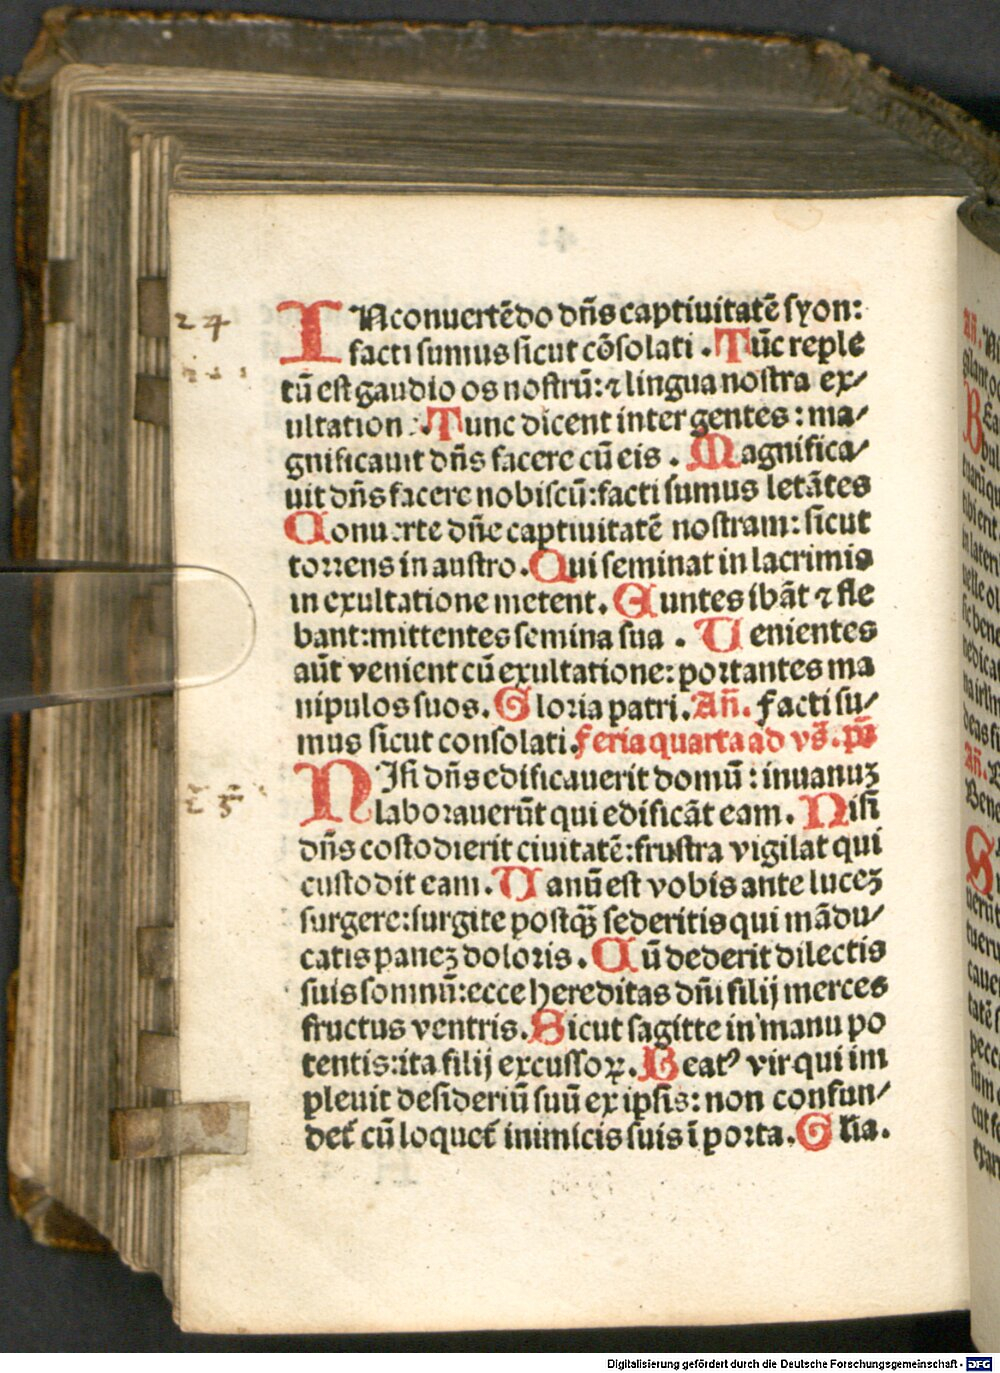 24
IN conuertēdo dn̄s captiuitatē syon:
facti sumus sicut cōsolati. Tūc reple
tū est gaudio os nostrū: ⁊ lingua nostra ex/
ultation. Tunc dicent inter gentes: ma/
gnificauit dn̄s facere cū eis. Magnifica/
uit dn̄s facere nobiscū: facti sumus letātes
Conuerte dn̄e captiuitatē nostram: sicut
torrens in austro. Qui seminat in lacrimis
in exultatione metent. Euntes ibāt ⁊ fle
bant: mittentes semina sua. Uenientes
aūt venient cū exultatione: portantes ma
nipulos suos. Gloria patri. Añ. facti su/
mus sicut consolati. feria quarta ad vs̄. ps̄
NIsi dn̄s edificauerit domū: inuanuꝫ
laborauerūt qui edificāt eam. Nisi
dn̄s costodierit ciuitatē: frustra vigilat qui
custodit eam. Uanū est vobis ante luceꝫ
surgere: surgite postqꝫ̄ sederitis qui mādu/
catis paneꝫ doloris. Cū dederit dilectis
suis somnū: ecce hereditas dn̄i filij merces
fructus ventris. Sicut sagitte in manu po
tentis: ita filij excussoꝝ. Beatꝰ vir qui im
pleuit desideriū suū ex ipsis: non confun/
det̄ cū loquet̄ inimicis suis ī porta. Glia.
Añ.
Digitalisierung gefördert durch die Deutsche Forschungsgemeinschaft - DFG